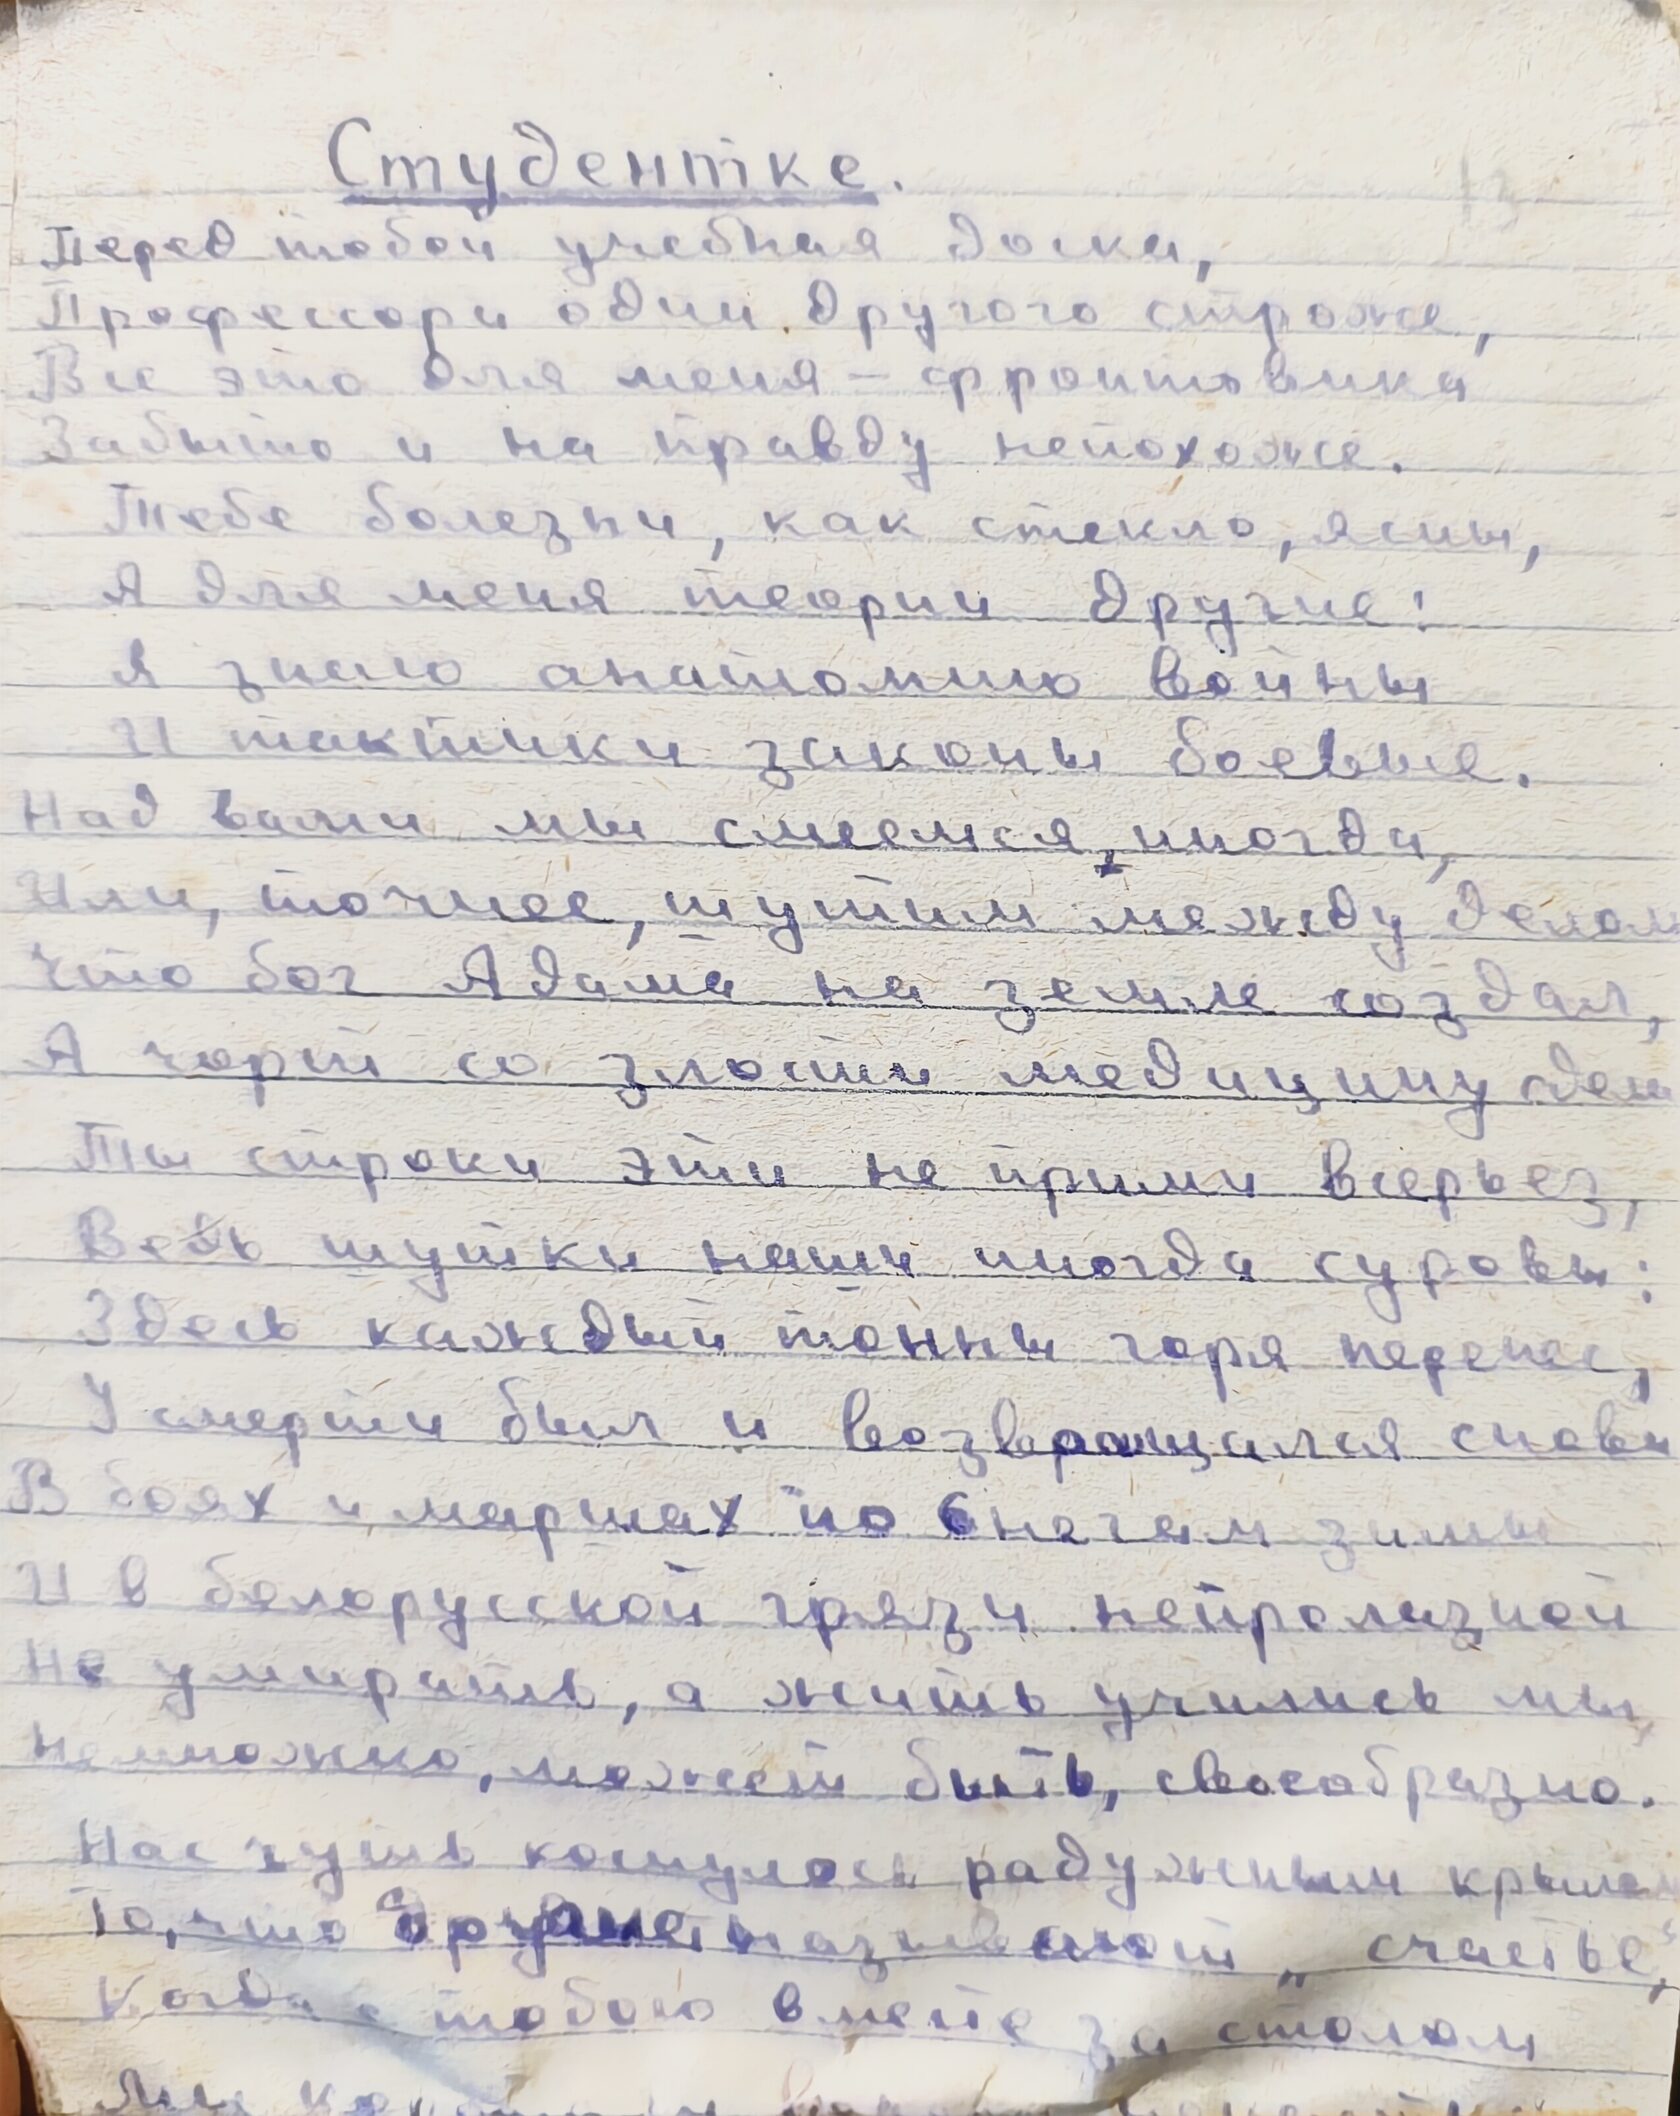 Студентке.
Перед тобой учебная доска,
Профессора один другого строже,
Все это для меня – фронтовика
Забыто и на правду непохоже.
Тебе болезни, как стекло, ясны,
А для меня теории другие!
Я знаю анатомию войны
И тактики законы боевые.
Над вами мы смеемся, иногда,
Или, точнее, шутим между делом
Что бог Адама на земле создал,
А чорт со злости медицину
Ты строки эти не прими всерьез,
Ведь шутки наши иногда суровы:
Здесь каждый тонны горя перенес,
У смерти был и возвращался снова
В боях и маршах по снегам зимы
И в белорусской грязи непролазной
Не умирать, а жить учились мы,
Немножко, может быть, своеобразно.
Нас чуть коснулось радужным крылом
То, что другие называют „счастье“,
Когда с тобою вместе за столом
Мы